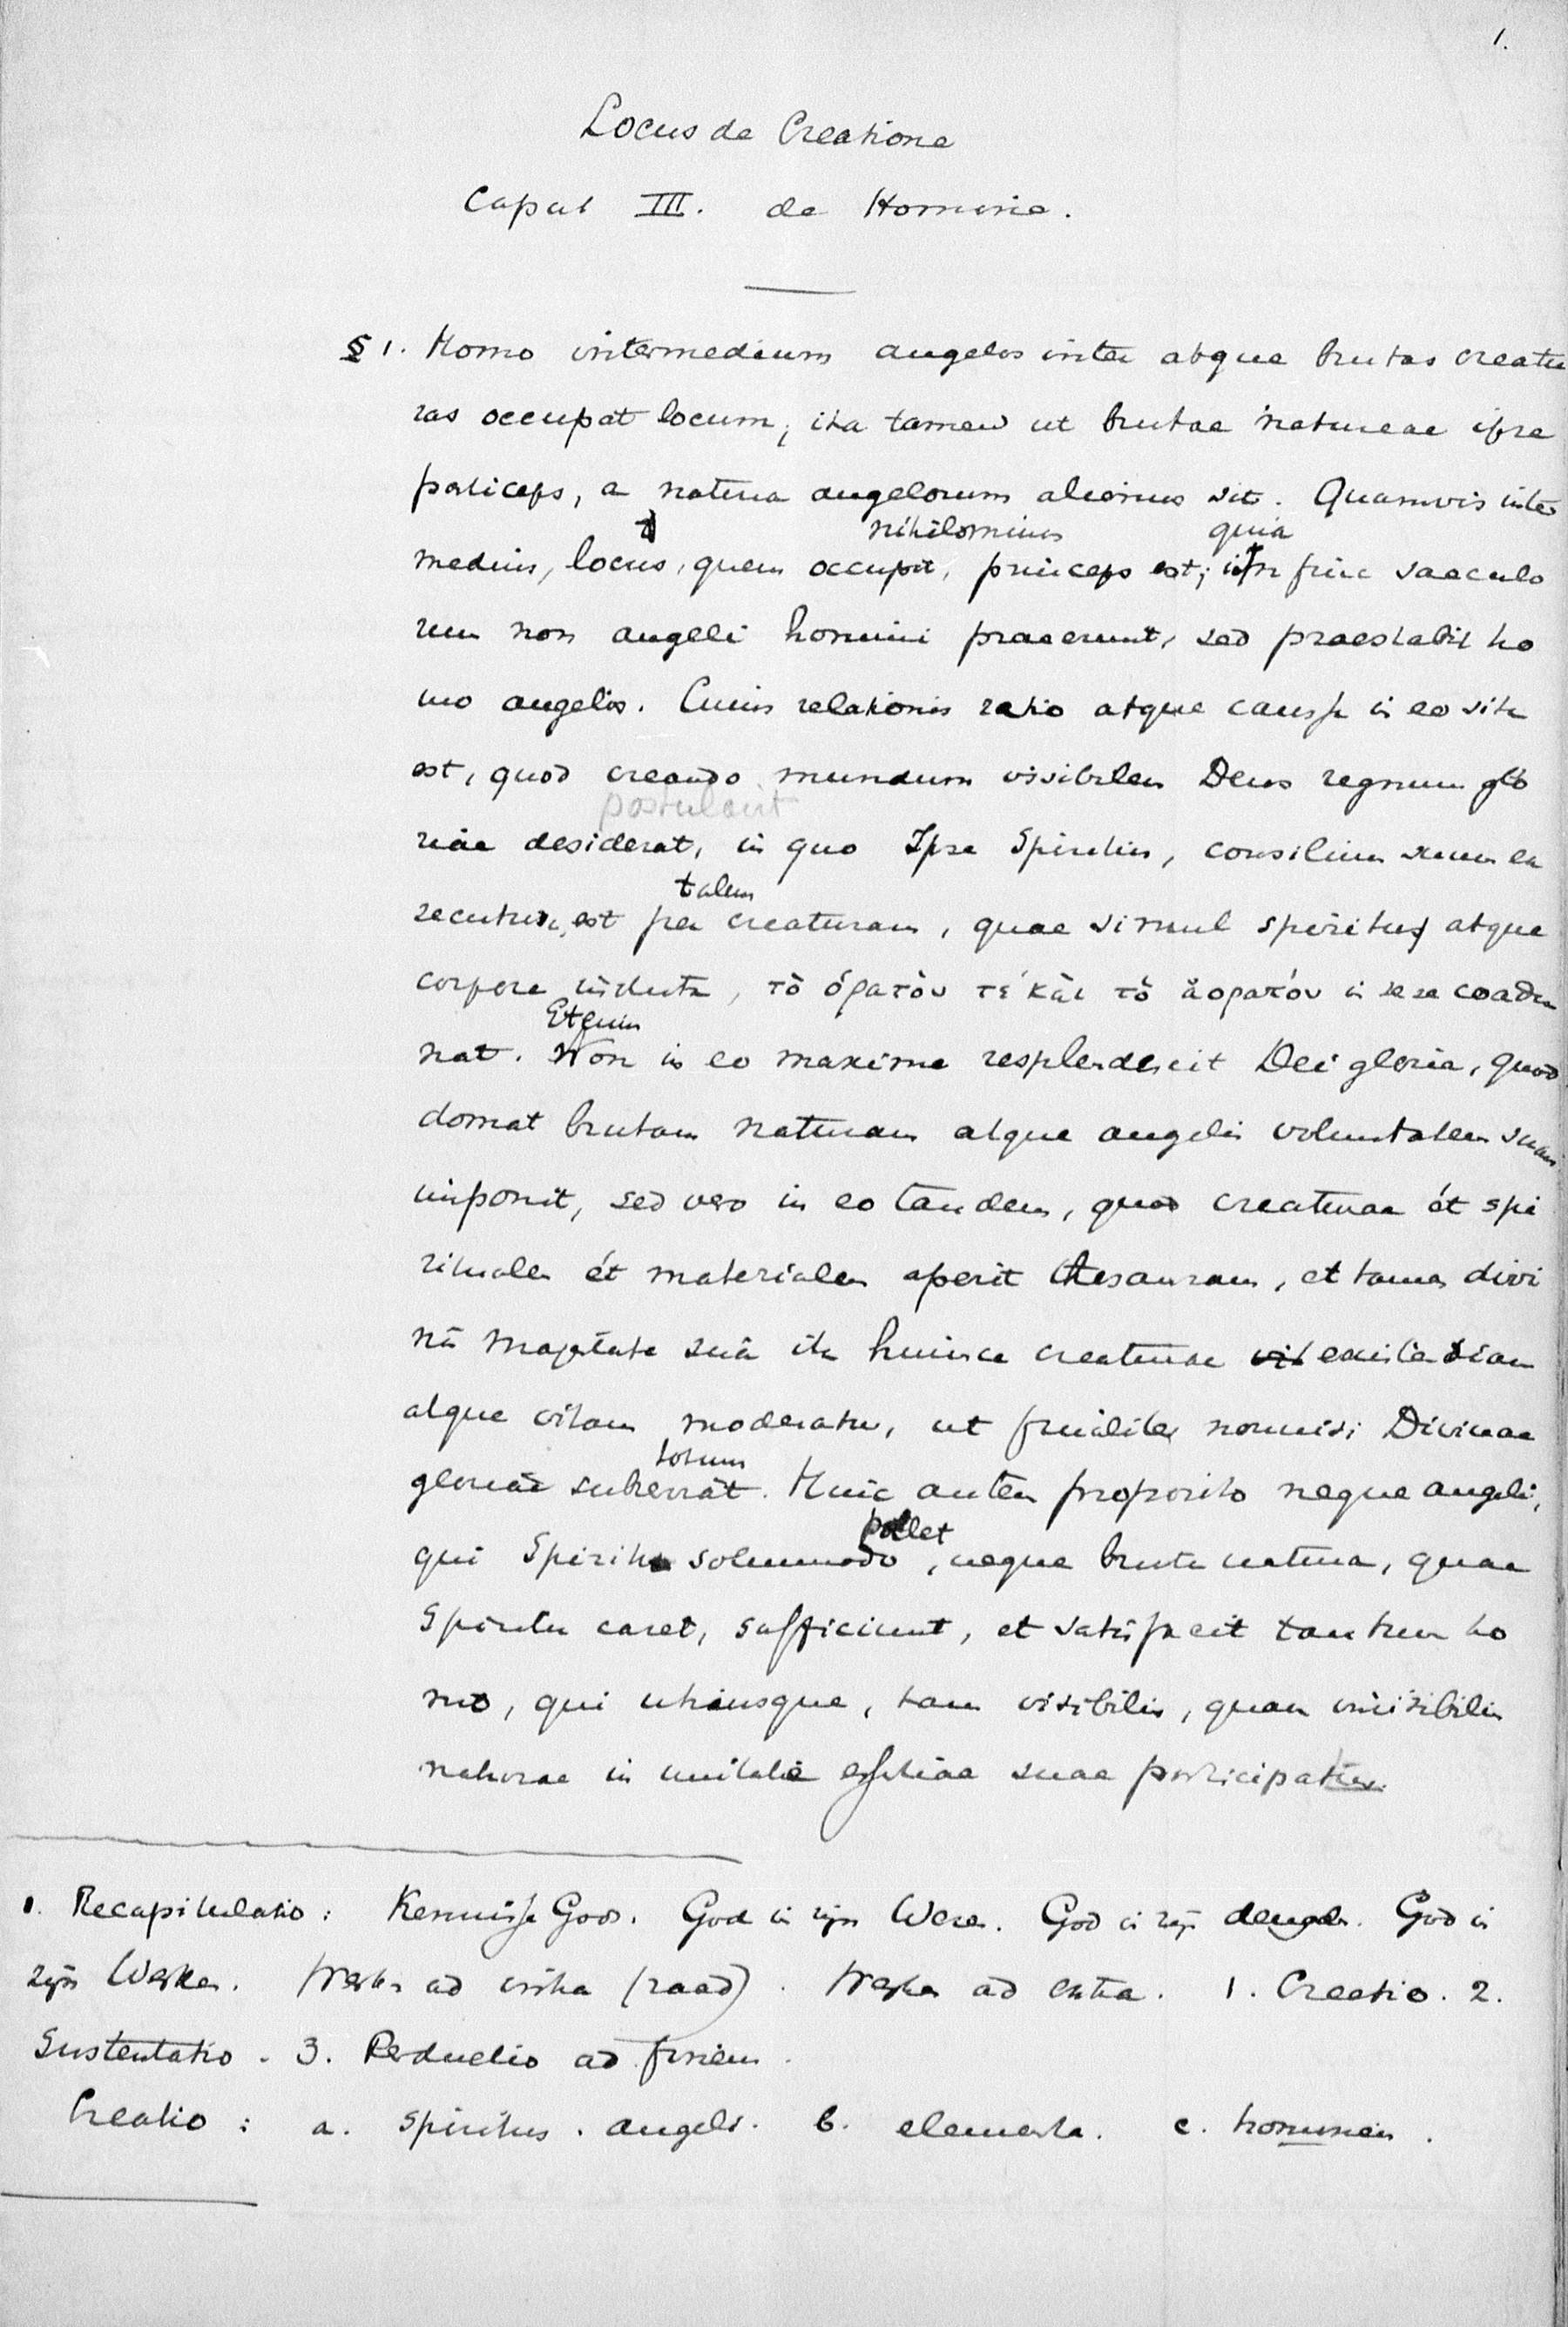 1.
Locus de Creatione
Caput III. de Homine.
§ 1. Homo intermedium angelos inter atque brutas creatu
ras occupat locum, ita tamen ut brutae naturae ipse
particeps, a natura angelorum alienus sit. Quamvis inter
nihilominus quia
medius, locus, quem occupat, princeps est; in fine saeculo
rum non angeli homini praeerunt, sed praestabit ho
mo angelis. Cuius relationis ratio atque caussa in eo sita
est, quod creando mundum visibilem Deus regnum glo
postulavit
riae desiderat, in quo Ipse Spiritus, consilium suum ex
talem
secuturus est per creaturam, quae simul spiritus atque
corpore induta, τὸ ὁρατὸν τέ καὶ τὸ ἀορατόν in se se coadu
Etenim
nat. Non in eo maxime resplendescit Dei gloria, quod
domat brutam naturam atque angelis voluntatem suam
imponit, sed vero in eo tandem, quod creaturae ét spi
ritualem ét materialem aperit thesauram, et tamen divi
nâ majestate suâ ita huiusce creaturae existentiam
atque vitam moderatur, ut finaliter nonnisi Divinae
totum
gloriae subserviat. Huic autem proposito neque angeli,
pollet
qui Spiritu solummodo, neque bruta natura, quae
Spiritu caret, sufficiunt, et satisfacit tantum ho
mo, qui utriusque, tam visibilis, quam invisibilis
naturae in unitate essentiae suae participatur.
1. Recapitulatio: Kennisse Gods. God in zijn Wezen. God in zijn deugden. God in
zijn Werken. Werken ad intra (raad). Werken ad extra. 1. Creatio. 2.
Sustentatio. 3. Perductio ad finem.
Creatio: a. spiritus. angeli. b. elementa. c. hominem.